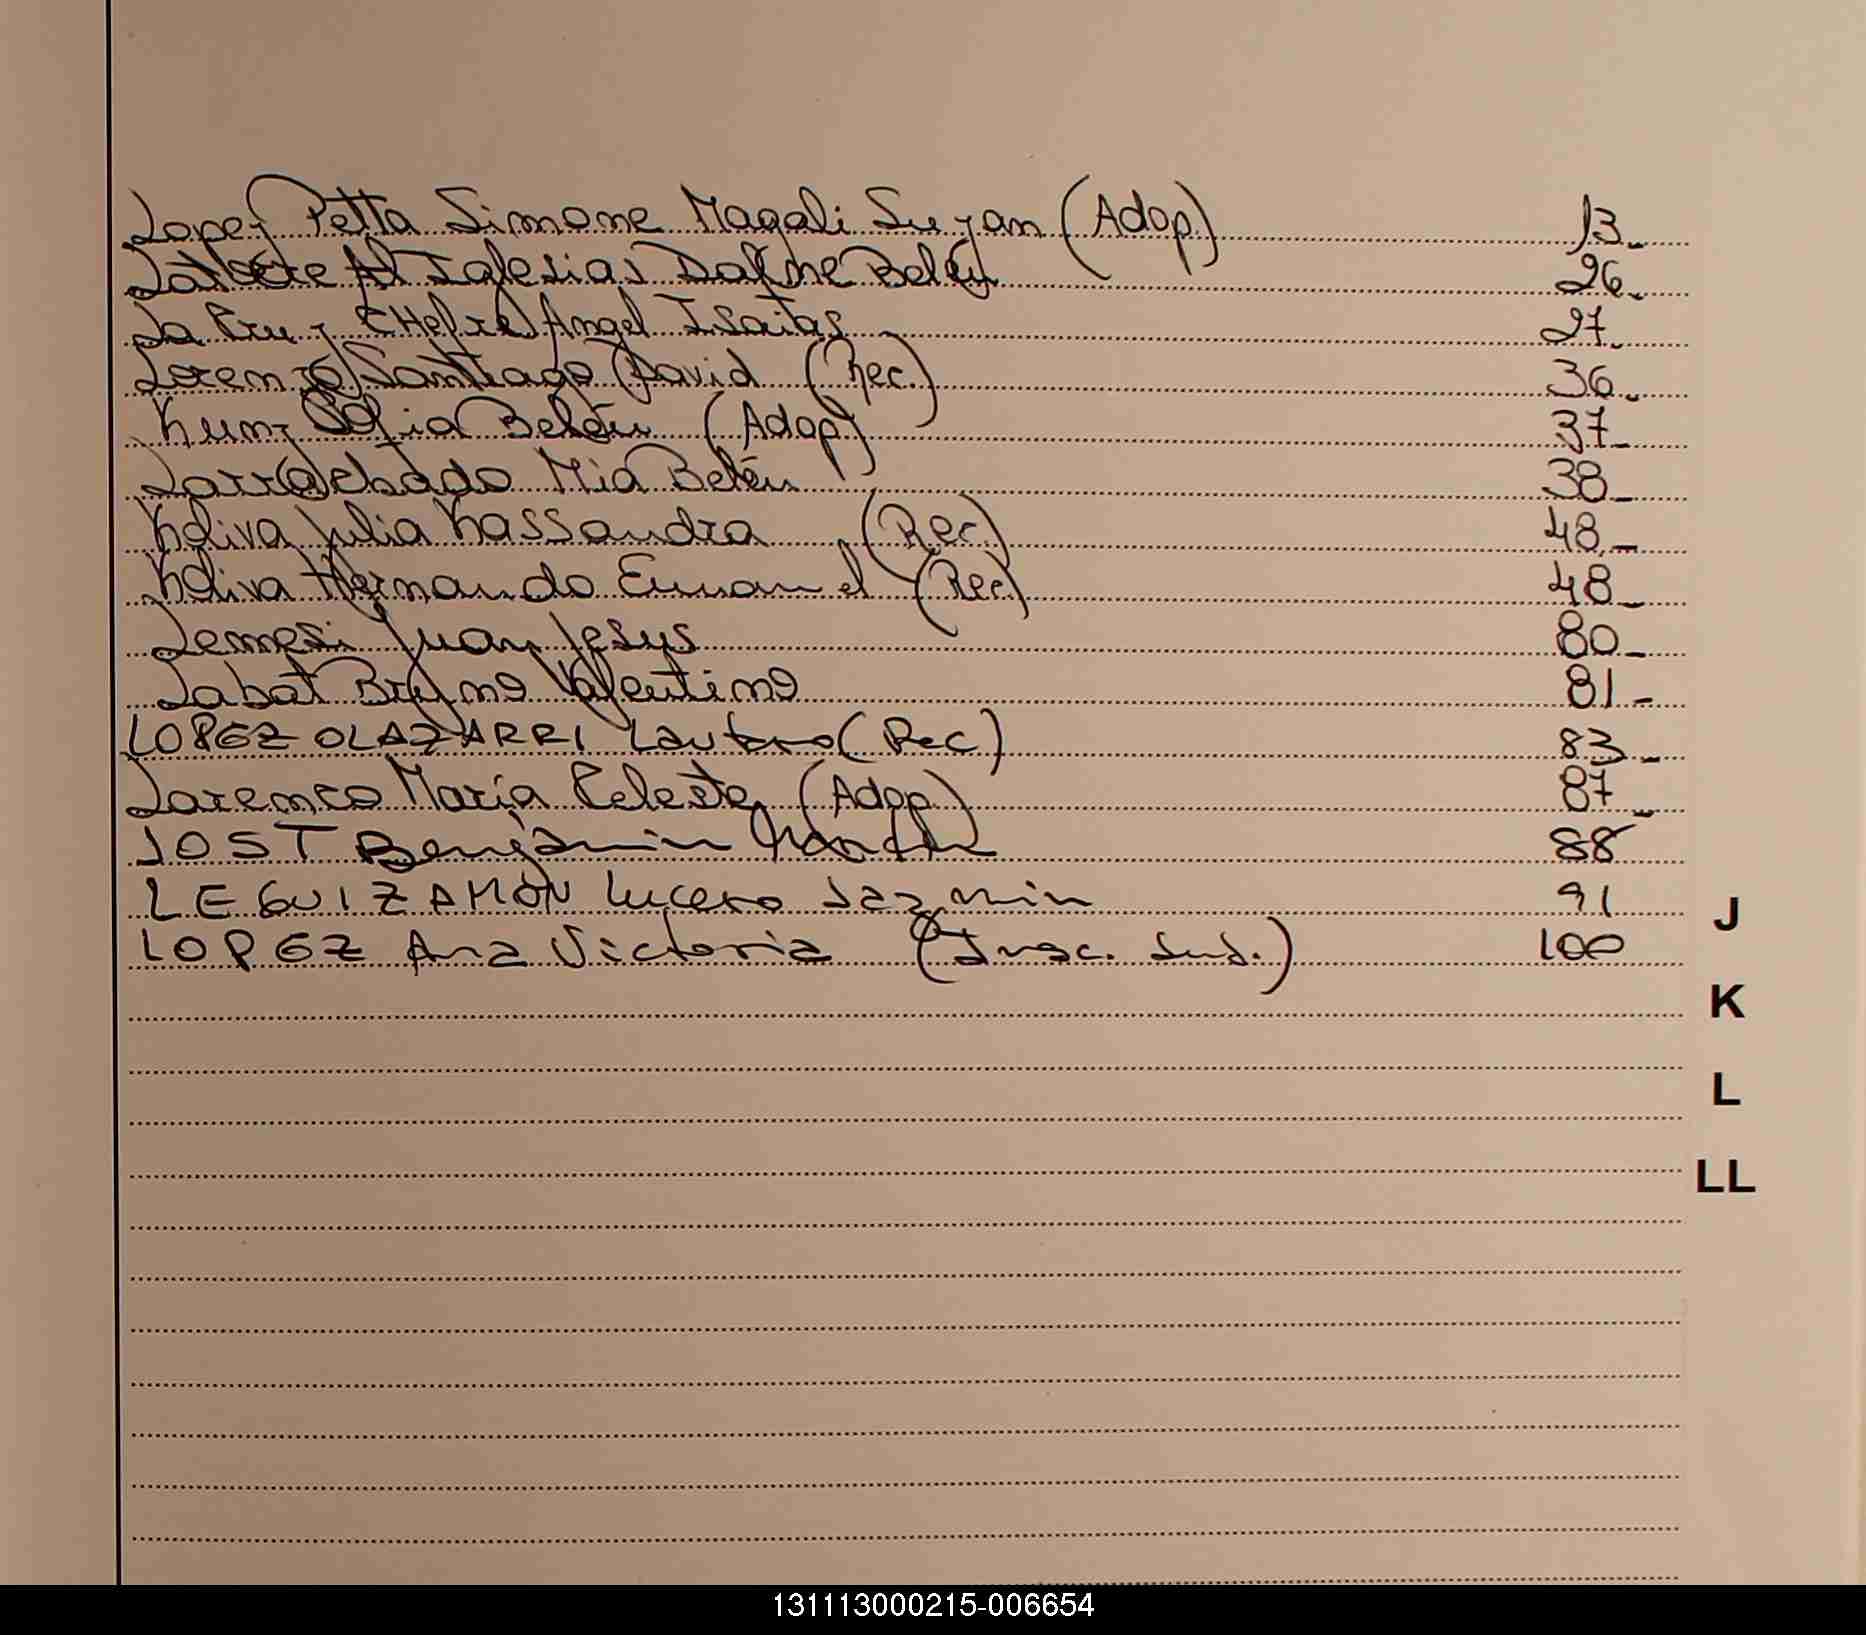 Lopez Petta Simone Magali Suzan (Adop.) 13-
Iglesias Dafne Belén 26-
La Cruz Angel Isaias - 27-
Lorenzo Santiago David (Rec.) 36-
Kunz Sofia Belén (Adop) 37-
Mia Belén 38-
Kaliva Julia Kassandra (Rec.) 48-
Kaliva Hernando Emanuel (Rec.) 48-
Lemesi Juan Jesus 80-
Labat Bruno Valentino 81-
LOPEZ OLAZARRI Lautaro (Rec) 83-
Lorenzo María Celeste (Adop) 87-
JOST Benjamin 88
LEGUIZAMÓN Lucero Jazmin 91
LOPEZ Ana Victoria (Insc. Jud.) 100
J
K
L
LL
131113000215-006654